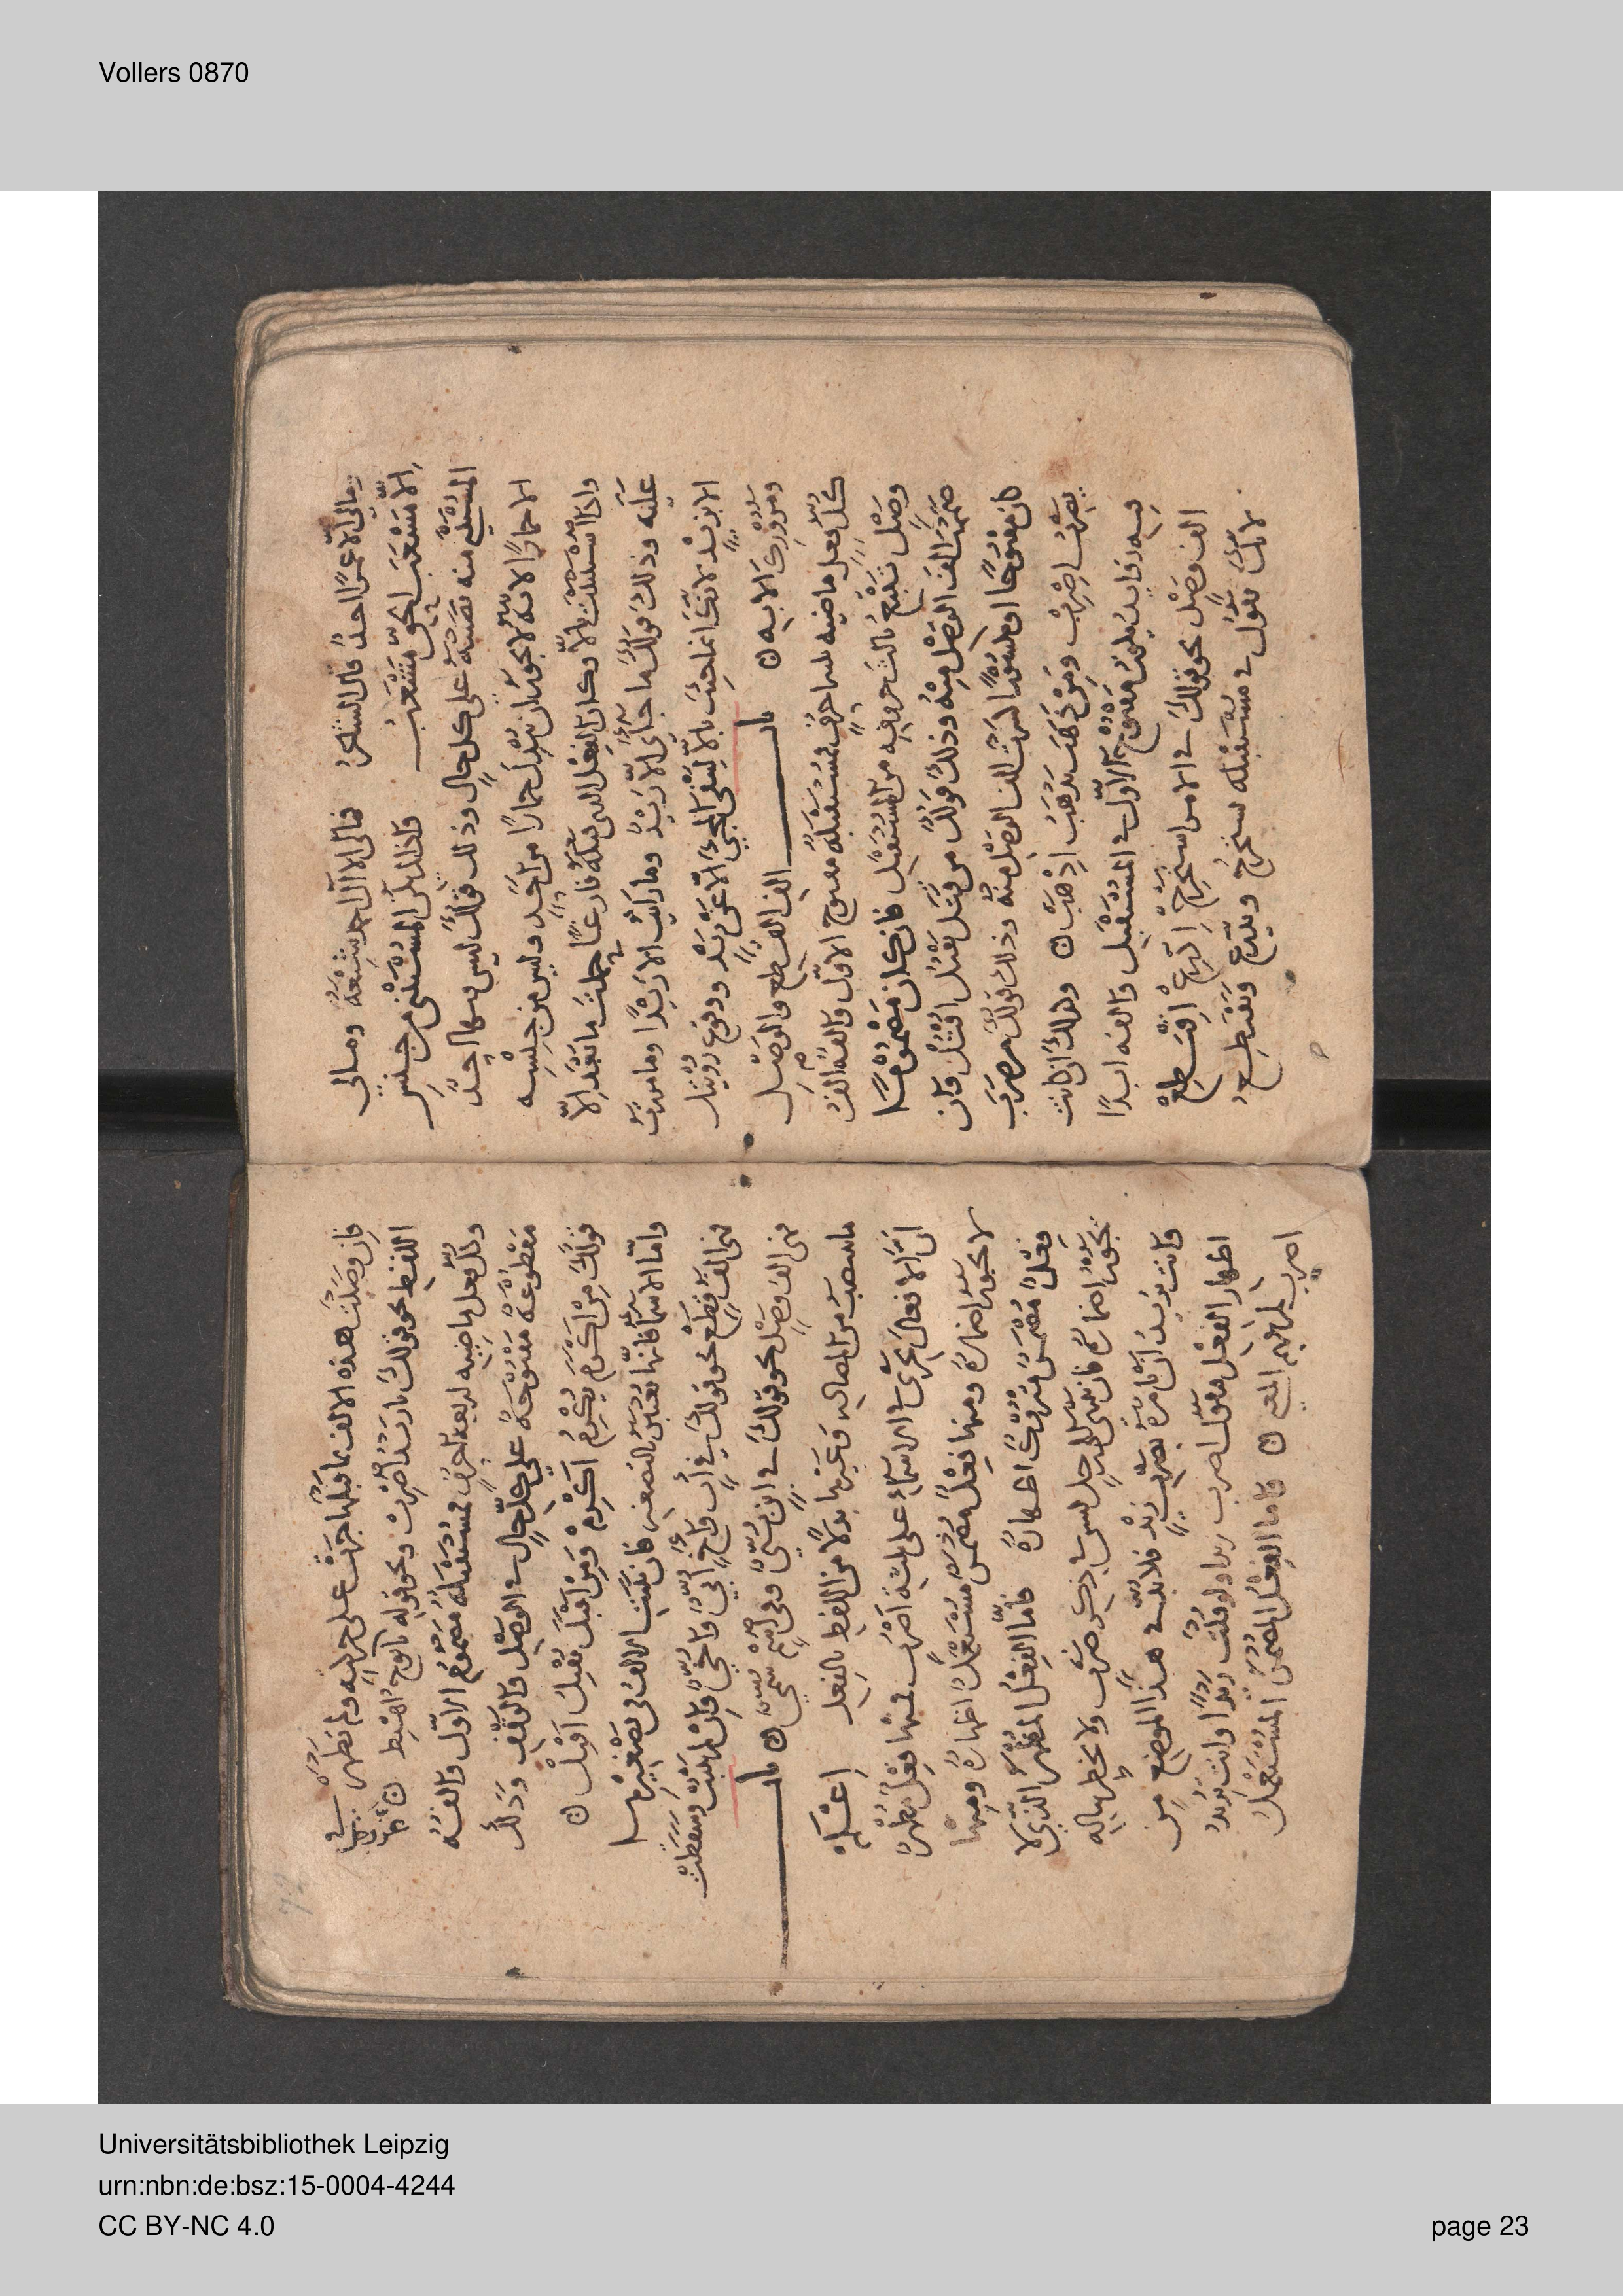 Vollers 0870
ومالي الا عمرًا احدٌ قال الشاعرُ فمالي الا آل احمد شيعة ومالي
الّا مشعَبَ الحقِّ مشعبُ واذا لم يكن المستثنى من جنس
المستثنى منه نصبته على كل حالٍ وذلك قولك ليس بها احدٌ
الا حمارًا لانه لا يجوز ان تبدل حمارًا من احدٍ وليس من جنسه
واذا استثنيت بالّا وكان الفعل الذي قبلها فارغًا جعلت ما بعد الّا
عليه وذلك قولك ما جاءني الّا زيدٌ وما رايت الا زيدًا وما مررت
الا بزيدٍ لانك انما جئت بالّا لتنفي المجيء الّا عن زيدٍ ووقوع رؤيتك
ومرورك الا به
باب الف القطع والوصل
كل فعل ماضيه ثلثة احرف فمستقبله مفتوح الاول والفه الف
وصل تتبع ثالث حروفه من المستقبل فان كان مضموما
ضممت الف الوصل منه وذلك قولك من قتل يقتل اقتل وان
كان مفتوحًا او مكسورًا كسرت الف الوصل منه وذلك قولك من ضرب
يضرب اضرب ومن ذهب يذهب اذهب وكذلك ان كانت
فيه زوايد فمفتوح الاول في المستقبل والفه ابدًا
الف وصل نحو قولك في الامر استخرج انتزع اقتطع
لانك تقول في مستقبله يستخرج وينتزع ويقتطع
فان وصلت هذه الالف بما قبلها جرت على حاليه ولم تظهر في
اللفظ نحو قولك يا زيد اضرب ونحو قوله يا نوح اهبط
وكل فعل ماضيه اربعة احرف فمستقبله مضموم الاول والفه
مقطوعة مفتوحة على كل حال في الوصل والوقف وذلك
قولك من اكرم يكرم اكرم ومن اقبل يقبل اقبل
واما الاسما فانها تعتبر بالتصغير فان ثبتت الالف في تصغيرها
فهي الف قطع نحو قولك في أب واخ أُبيّ واخيّ وان لم تثبت وسقطت
فهي الف وصل نحو قولك في ابن بُنيّ وفي اسم سُميّ
باب ما ينتصب من المصادر وغيرها بدلًا من اللفظ بالفعل اعلم
ان الافعال تجري في الاسماء على ثلثة اضرب فمنها فعل مظهر
لا يجوز اضماره ومنها فعل مضمر مستعمل اظهاره ومنها
فعل مضمر متروك اظهاره فاما الفعل المظهر الذي لا
يجوز اضماره فان تنتهي الى رجل ليس في ذكر ضرب ولا يخطر بباله
وانت تريد ان تامره بضرب زيد فلا بد في هذا الموضع من
اظهار الفعل فتقول اضرب زيدا ولو قلت زيدًا وانت تريد
اضرب لم يفهم المعنى واما الفعل المضمر المستعمل
Universitätsbibliothek Leipzig
urn:nbn:de:bsz:15-0004-4244
CC BY-NC 4.0
page 23